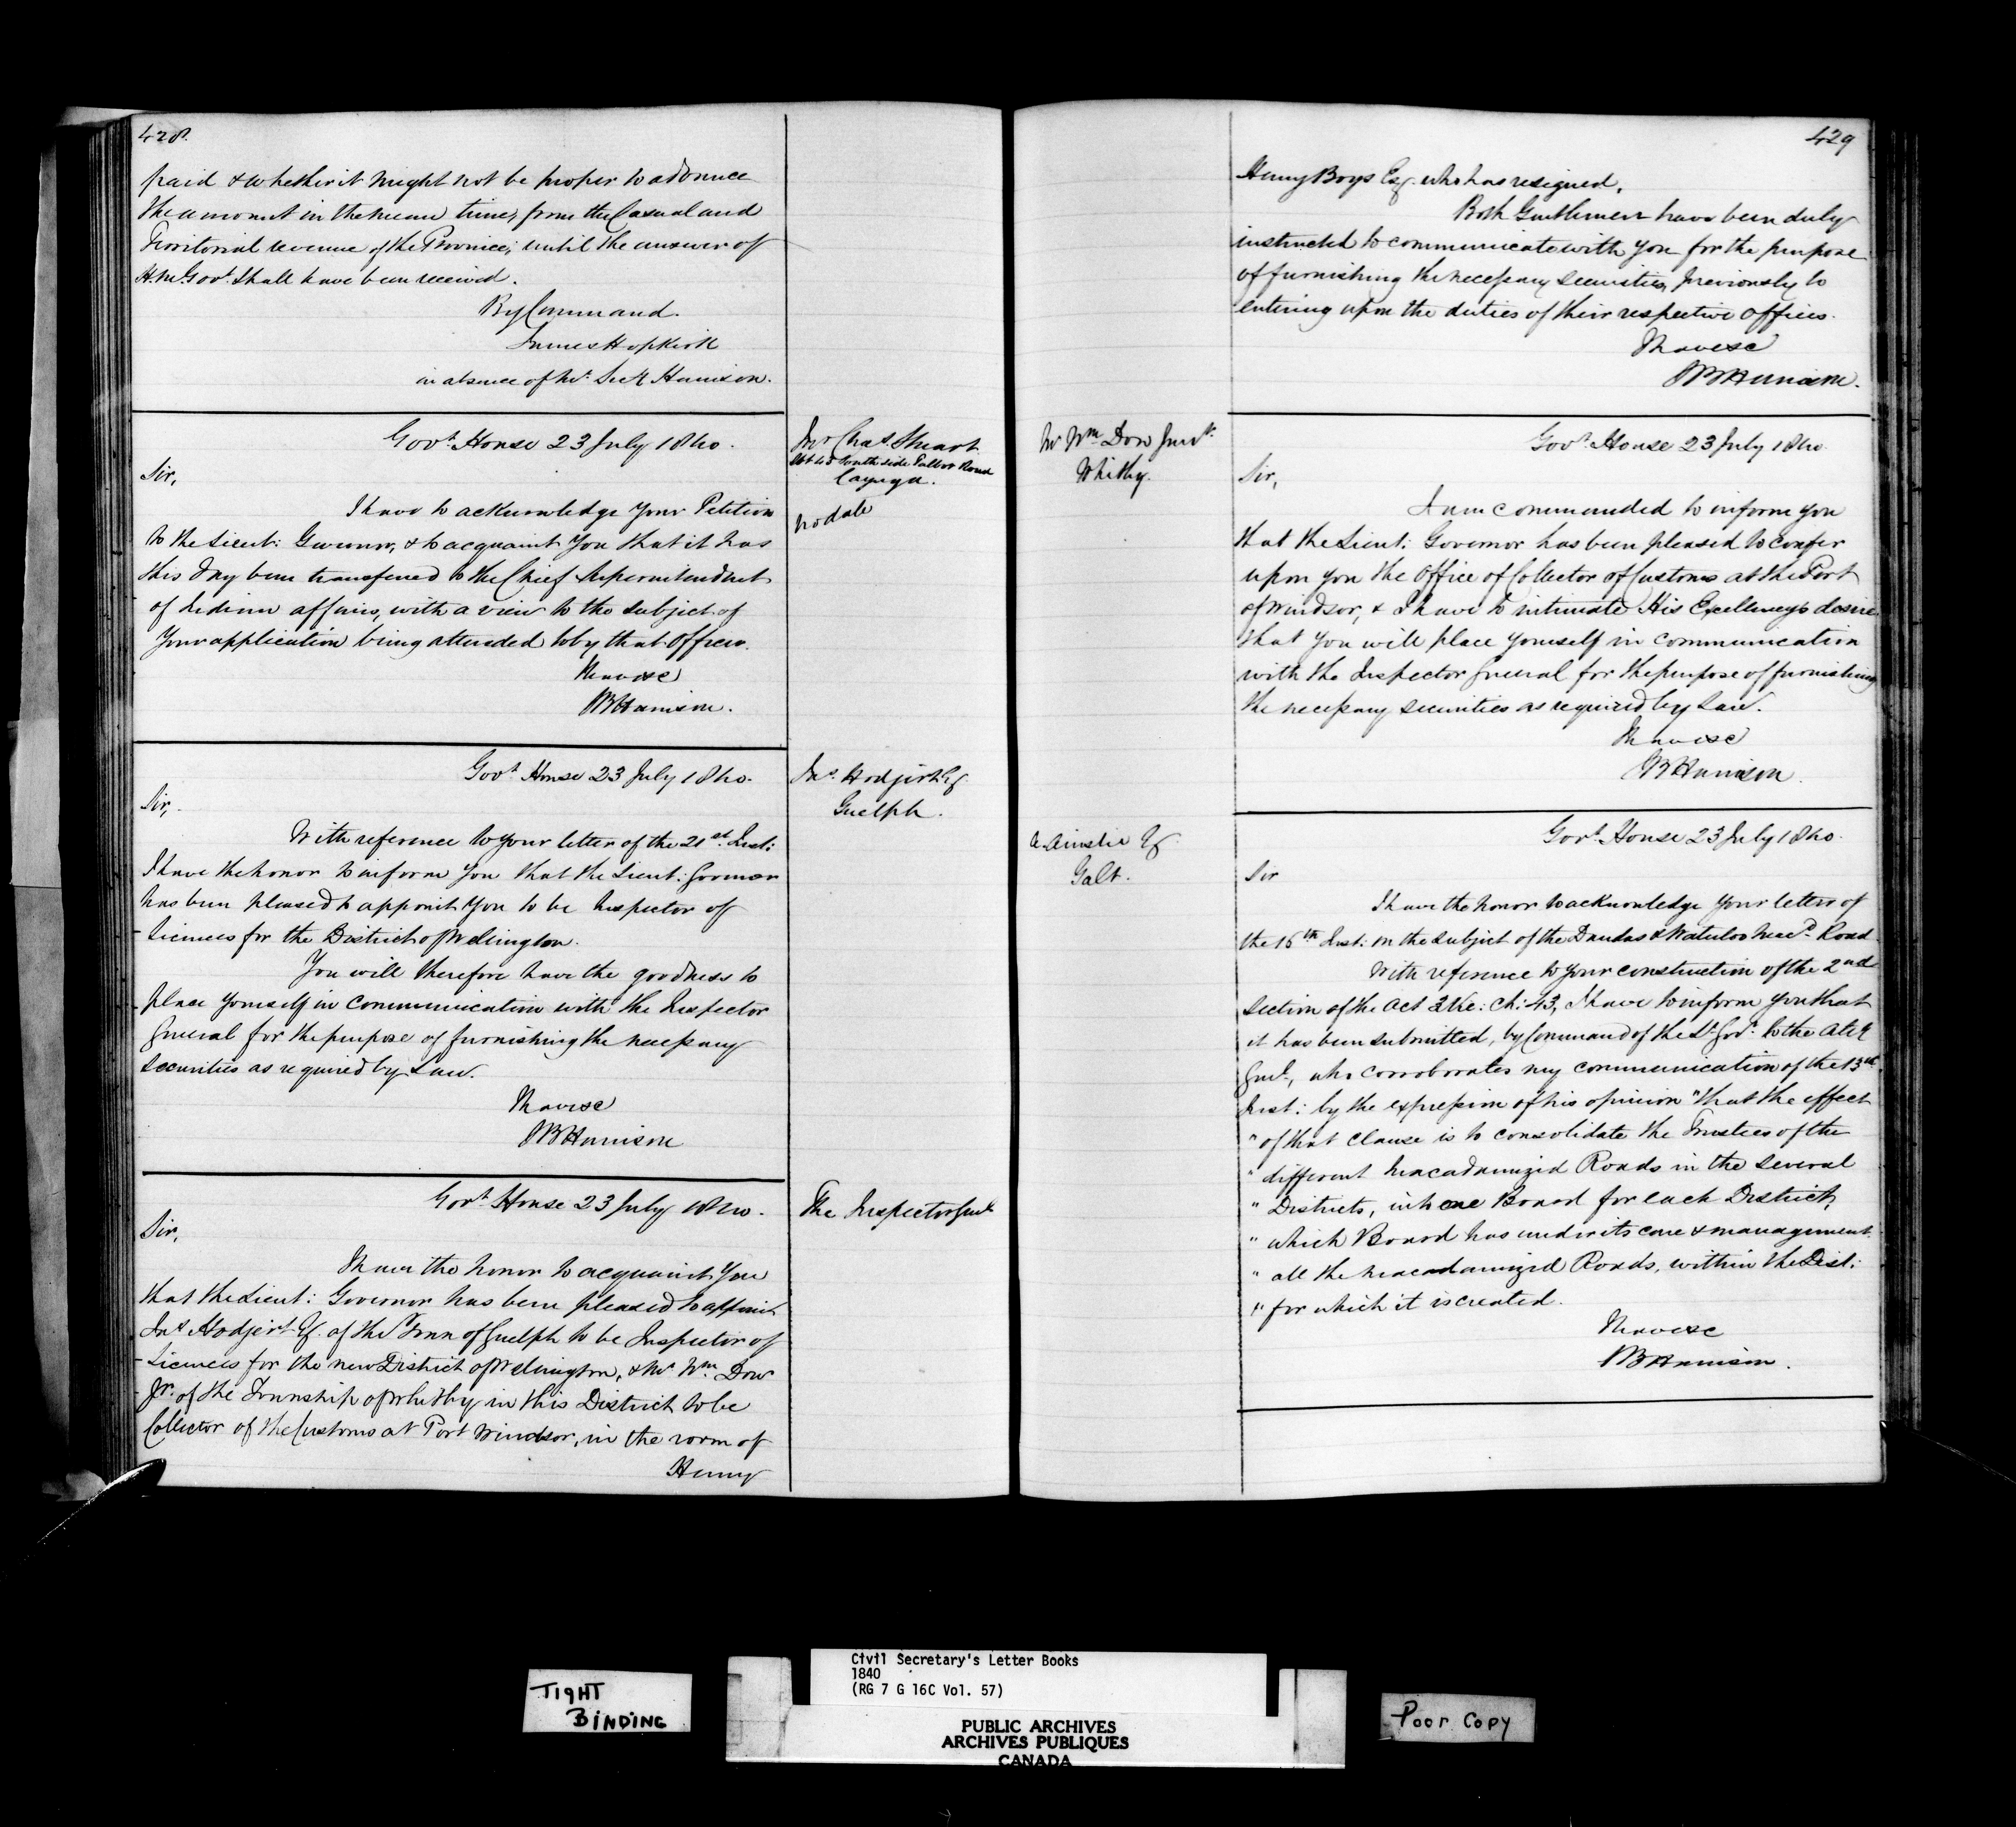 428.
paid & whether it might not be proper to advance
the amount in the mean time, from the Casual and
Territorial revenue of the Province; until the answer of
H. M. Govt. shall have been received.
By Command.
James Hopkirk
in absence of Mr. Secy Harrison.
Govt. House 23 July 1840.
Mr Chas. Stuart
Lot 43 South side Talbot Road
Cayuga.
no date
Sir,
I have to acknowledge Your Petition
to the Lieut: Governor, & to acquaint You that it has
this day been transferred to the Chief Superintendent
of Indian affairs, with a view to the subject of
Your application being attended to by that Officer.
I have &c
SB Harrison.
Govt. House 23 July 1840.
Guelph.
Sir,
With reference to your letter of the 21st. Inst:
I have the honor to inform You that the Lieut: Governor
has been pleased to appoint You to be Inspector of
Licences for the District of Wellington.
You will therefore have the goodness to
place yourself in communication with the Inspector
General for the purpose of furnishing the necessary
securities as required by Law.
I have &c
SB Harrison
Govt. House 23 July 1840.
The Inspector Genl
Sir,
I have the honor to acquaint You
that the Lieut: Governor has been pleased to appoint
Esq. of the Town of Guelph to be Inspector of
Licences for the new District of Wellington, & Mr. Wm. Dow
Jr. of the Township of Whitby in this District to be
Collector of the Customs at Port Windsor, in the room of
Henry
429
Henry Boys Esq. who has resigned.
Both Gentlemen have been duly
instructed to communicate with You for the purpose
of furnishing the necessary securities, previously to
entering upon the duties of their respective offices.
I have &c
SB Harrison.
Mr Wm. Dow Junr.
Whitby.
Govt. House 23 July 1840.
Sir,
I am commanded to inform you
that the Lieut: Governor has been pleased to confer
upon you the Office of Collector of Customs at the Port
of Windsor, & I have to intimate His Excellency's desire
that you will place yourself in communication
with the Inspector General for the purpose of furnishing
the necessary securities as required by Law.
I have &c
SB Harrison.
Govt. House 23 July 1840.
A. Ainslie Esq.
Galt.
Sir
I have the honor to acknowledge your letter of
the 16th Inst: on the subject of the Dundas & Waterloo Macd. Road.
With reference to your construction of the 2nd
section of the Act 3 Vic: Ch: 43, I have to inform you that
it has been submitted, by Command of the Lt. Govr. to the Atty
Genl., who corroborates my communication of the 13th
Inst: by the expression of his opinion "that the effect
" of that clause is to consolidate the Trustees of the
" different Macadamized Roads in the several
" Districts, into one Board for each District,
" which Board has under its care & management
" all the Macadamized Roads, within the Dist:
" for which it is created.
I have &c
SB Harrison.
TIGHT
BINDING
Civil Secretary's Letter Books
1840
(RG 7 G 16C Vol. 57)
PUBLIC ARCHIVES
ARCHIVES PUBLIQUES
CANADA
Poor Copy